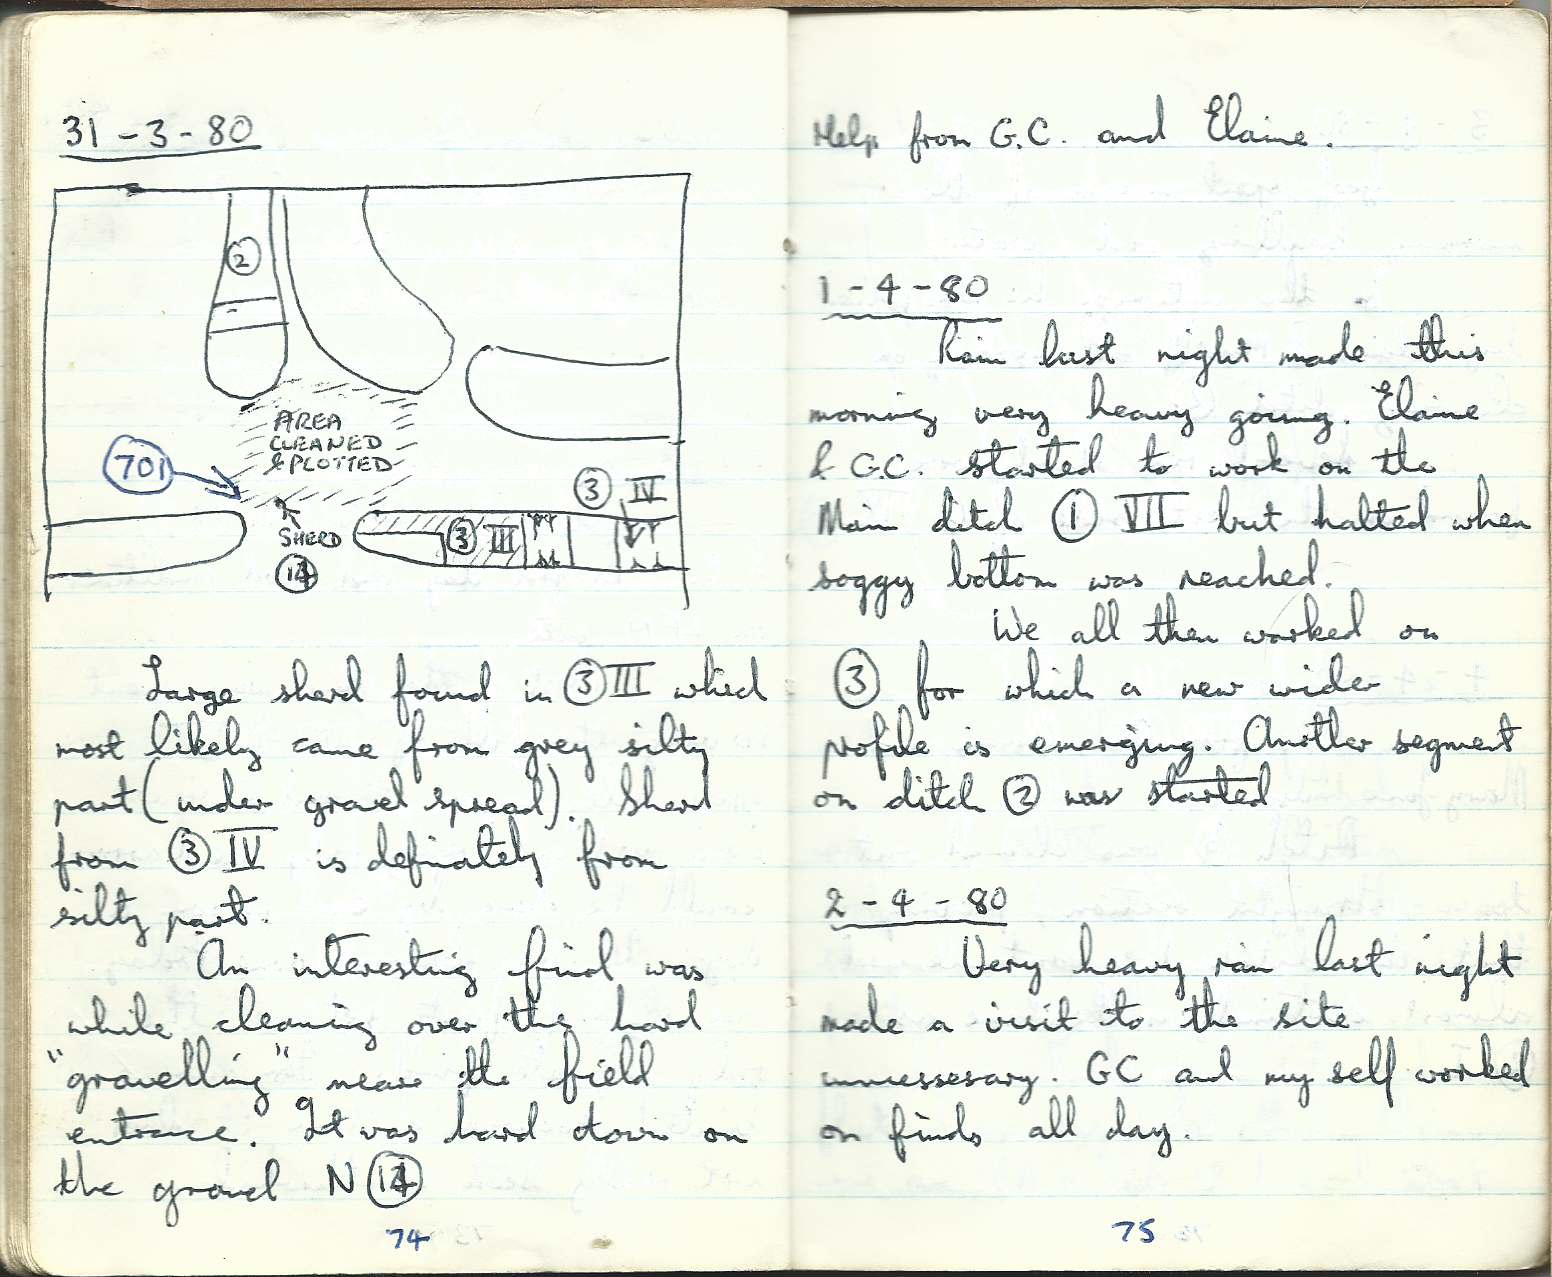 31-3-80
②
AREA
CLEANED
& PLOTTED
701
③ IV
SHERD
③ III
⑭
Large sherd found in ③ III which
most likely came from grey silty
part (under gravel spread). Sherd
from ③ IV is definately from
silty part.
An interesting find was
while cleaning over the hard
"gravelling" near the field
entrance. It was hard down on
the gravel N ⑭
74
Help from G.C. and Elaine.
1-4-80
Rain last night made this
morning very heavy going. Elaine
& G.C. started to work on the
Main ditch ① VII but halted when
soggy bottom was reached.
We all then worked on
③ for which a new wider
profile is emerging. Another segment
on ditch ② was started
2-4-80
Very heavy rain last night
made a visit to the site
unnessesary. GC and my self worked
on finds all day.
75